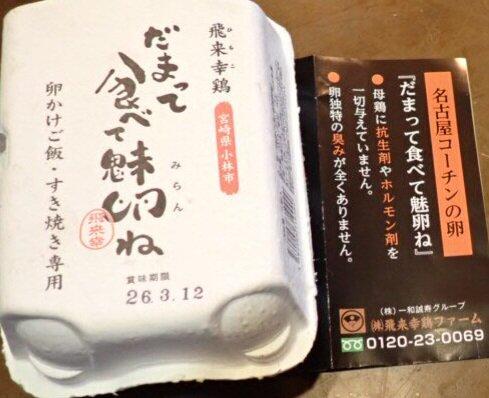 飛来幸鶏
ひもこ
だまって
食べて魅卵ね
みらん
宮崎県 小林市
卵かけご飯・すき焼き専用
飛来幸
賞味期限
26.3.12
名古屋コーチンの卵
『だまって食べて魅卵ね』
●母鶏に抗生剤やホルモン剤を
一切与えていません。
●卵独特の臭みが全くありません。
(株)一和誠寿グループ
㈱飛来幸鶏ファーム
0120-23-0069